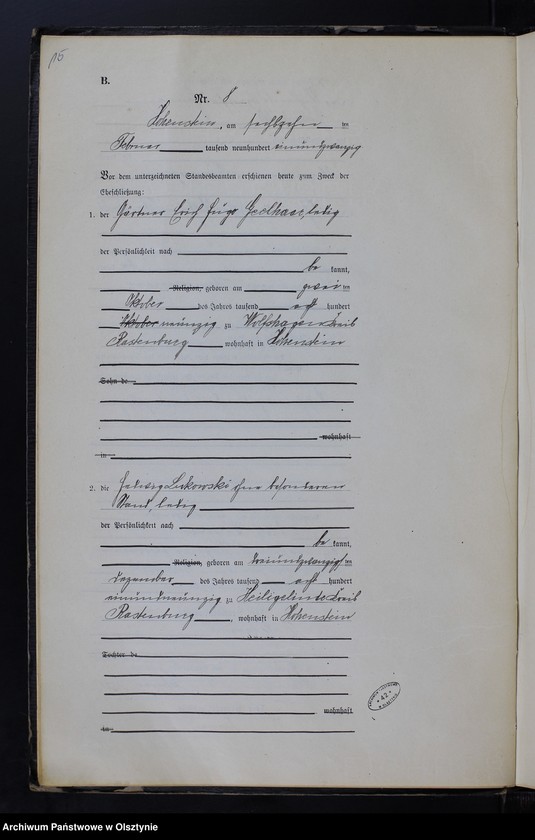 15
B.
Nr. 8
Hohenstein, am sechbzehn ten
Februar tausend neunhundert einundzwanzig
Vor dem unterzeichneten Standesbeamten erschienen heute zum Zweck der
Eheschließung:
1. der Gärtner Erich Hugo ledig
der Persönlichkeit nach
be kannt,
Religion, geboren am zwei ten
Oktober des Jahres tausend acht hundert
Oktober neunzig zu Wolfshagen Kreis
Rastenburg wohnhaft in Hohenstein
Sohn de
wohnhaft
in
2. die Hedwig Lukowski ohne besonderen
Stand, ledig
der Persönlichkeit nach
be kannt,
Religion, geboren am dreiundzwanzigsten
Dezember des Jahres tausend acht hundert
einundneunzig zu Heiligelinde Kreis
Rastenburg, wohnhaft in Hohenstein
Tochter de
wohnhaft
in
42
Archiwum Państwowe w Olsztynie